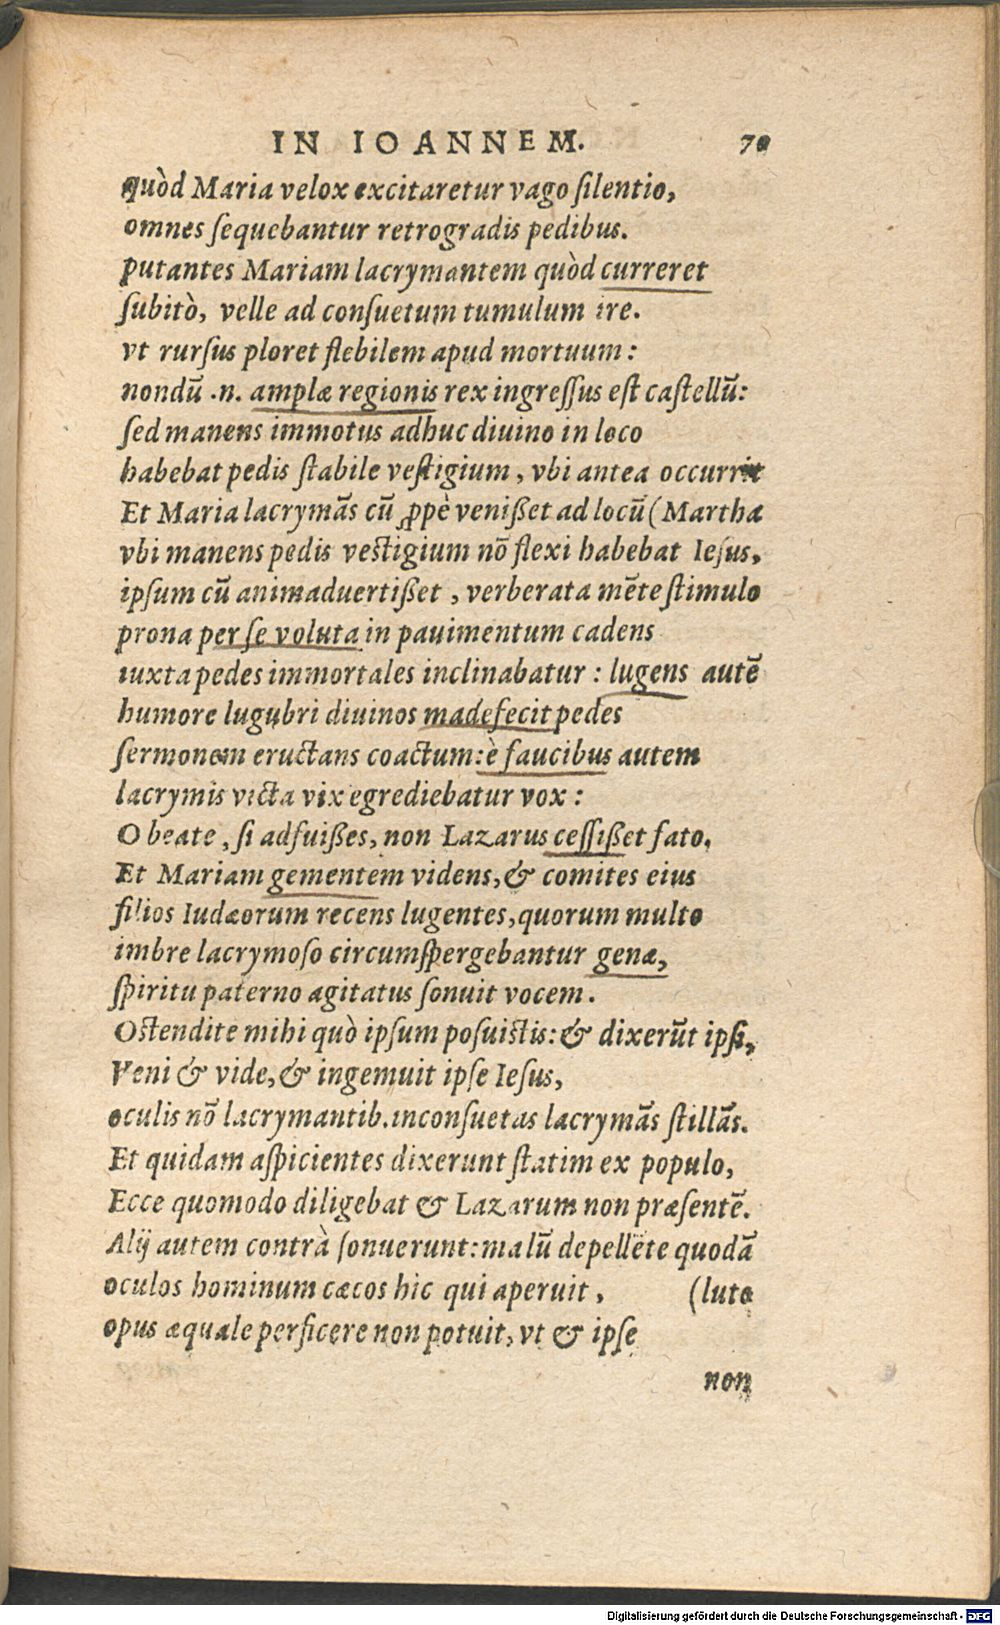 IN IOANNEM. 70
quòd Maria velox excitaretur vago ſilentio,
omnes ſequebantur retrogradis pedibus.
putantes Mariam lacrymantem quòd curreret
ſubitò, velle ad conſuetum tumulum ire.
vt rurſus ploret flebilem apud mortuum:
nondū .n. amplæ regionis rex ingreſſus eſt caſtellū:
ſed manens immotus adhuc diuino in loco
habebat pedis ſtabile veſtigium, vbi antea occurrit
Et Maria lacrymās cū ꝓpè venißet ad locū (Martha
vbi manens pedis veſtigium nō flexi habebat Ieſus,
ipſum cū animaduertißet, verberata mēte ſtimulo
prona per ſe voluta in pauimentum cadens
iuxta pedes immortales inclinabatur: lugens autē
humore lugubri diuinos madefecit pedes
ſermonem eructans coactum: è faucibus autem
lacrymis victa vix egrediebatur vox:
O beate, ſi adfuißes, non Lazarus ceſſißet fato.
Et Mariam gementem videns, & comites eius
filios Iudæorum recens lugentes, quorum multo
imbre lacrymoſo circumſpergebantur genæ,
ſpiritu paterno agitatus ſonuit vocem.
Oſtendite mihi quò ipſum poſuiſtis: & dixerūt ipſi,
Veni & vide, & ingemuit ipſe Ieſus,
oculis nō lacrymantib. inconſuetas lacrymās ſtillās.
Et quidam aſpicientes dixerunt ſtatim ex populo,
Ecce quomodo diligebat & Lazarum non præſentē.
Alij autem contrà ſonuerunt: malū depellēte quodā
oculos hominum cæcos hic qui aperuit, (luto
opus æquale perficere non potuit, vt & ipſe
non
Digitalisierung gefördert durch die Deutsche Forschungsgemeinschaft - DFG